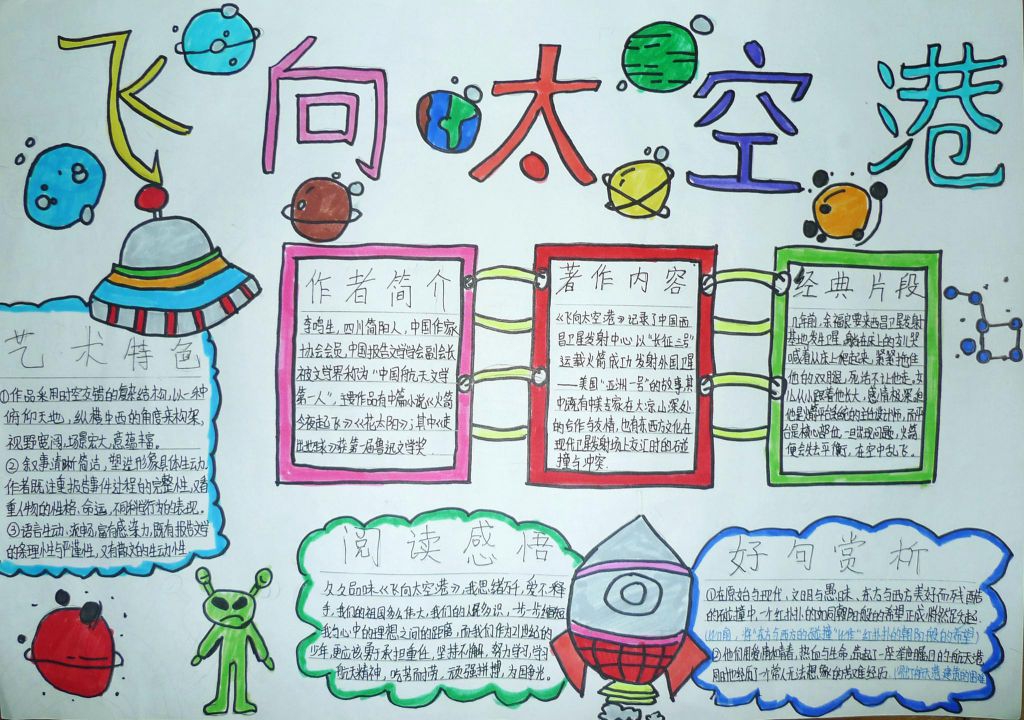 飞向太空港
作者简介
李鸣生，四川简阳人，中国作家
协会会员，中国报告文学学会副会长
被文学界称为“中国航天文学
第一人”，主要作品有中篇小说《火箭
今夜起飞》《花太阳》；其中《走
出地球》获第一届鲁迅文学奖
著作内容
《飞向太空港》记录了中国西
昌卫星发射中心以“长征三号”
运载火箭成功发射外国卫星
——美国“亚洲一号”的故事，其
中既有中美专家在大凉山深处
的合作与友情，也有东西方文化在
现代卫星发射场上交汇时的碰
撞与冲突.
经典片段
几年前，余福良要来西昌卫星发射
基地发卫星，躺在床上的女儿哭
喊着从床上爬起来，紧紧抱住
他的双腿，死活不让他走，女
儿从小跟着他长大，感情极深，
但是核心部位，一出现问题，火箭
便会失去平衡，在空中乱飞。
艺术特色
①作品采用时空交错的复杂结构，以一种
俯仰天地，纵横中西的角度来构架，
视野宽阔，场景宏大，意蕴丰富。
②叙事清晰简洁，塑造形象具体生动
作者既注重报告事件过程的完整性，又看
重人物的性格、命运、不同科学行为的表现。
③语言生动、流畅，富有感染力，既有报告文学
的条理性与严谨性，又有散文的生动性
阅读感悟
久久品味《飞向太空港》，我思绪万千，爱不释
手，我们的祖国多么伟大，我们的人民多识，一步一步缩短
我与心中的理想之间的距离，而我们作为21世纪的
少年，更应该勇于承担重任，坚持不懈、努力学习，学习
航天精神，吃苦而劳，顽强拼搏，为国争光。
好句赏析
①在原始与现代、文明与愚昧、东方与西方美好而残酷
的碰撞中，一个红扑扑的如同朝阳般的希望正成悄然跃起.
②他们用爱情和青春，热血与生命，筑起了一座举世瞩目的宇航天港
同时也经历了常人无法想象的苦难经历